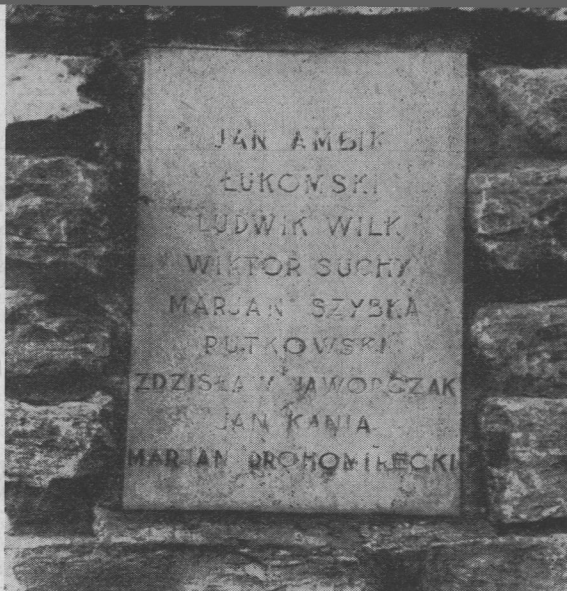 JAN AMBIK
ŁUKOMSKI
LUDWIK WILK
WIKTOR SUCHY
MARJAN SZYBKA
RUTKOWSKI
ZDZISŁAW JAWORCZAK
JAN KANIA
MARJAN DROHOMIRECKI